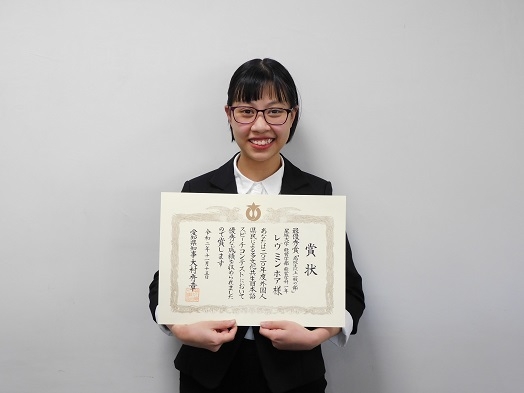 賞状
最優秀賞
星城大学 経営学部 経営学科 一年
レヴ ミン ホア 様
あなたは二〇二〇年度外国人
県民による多文化共生日本語
スピーチコンテストにおいて
優秀な成績を収められました
ので賞します
令和二年十一月十五日
愛知県知事 大村秀章